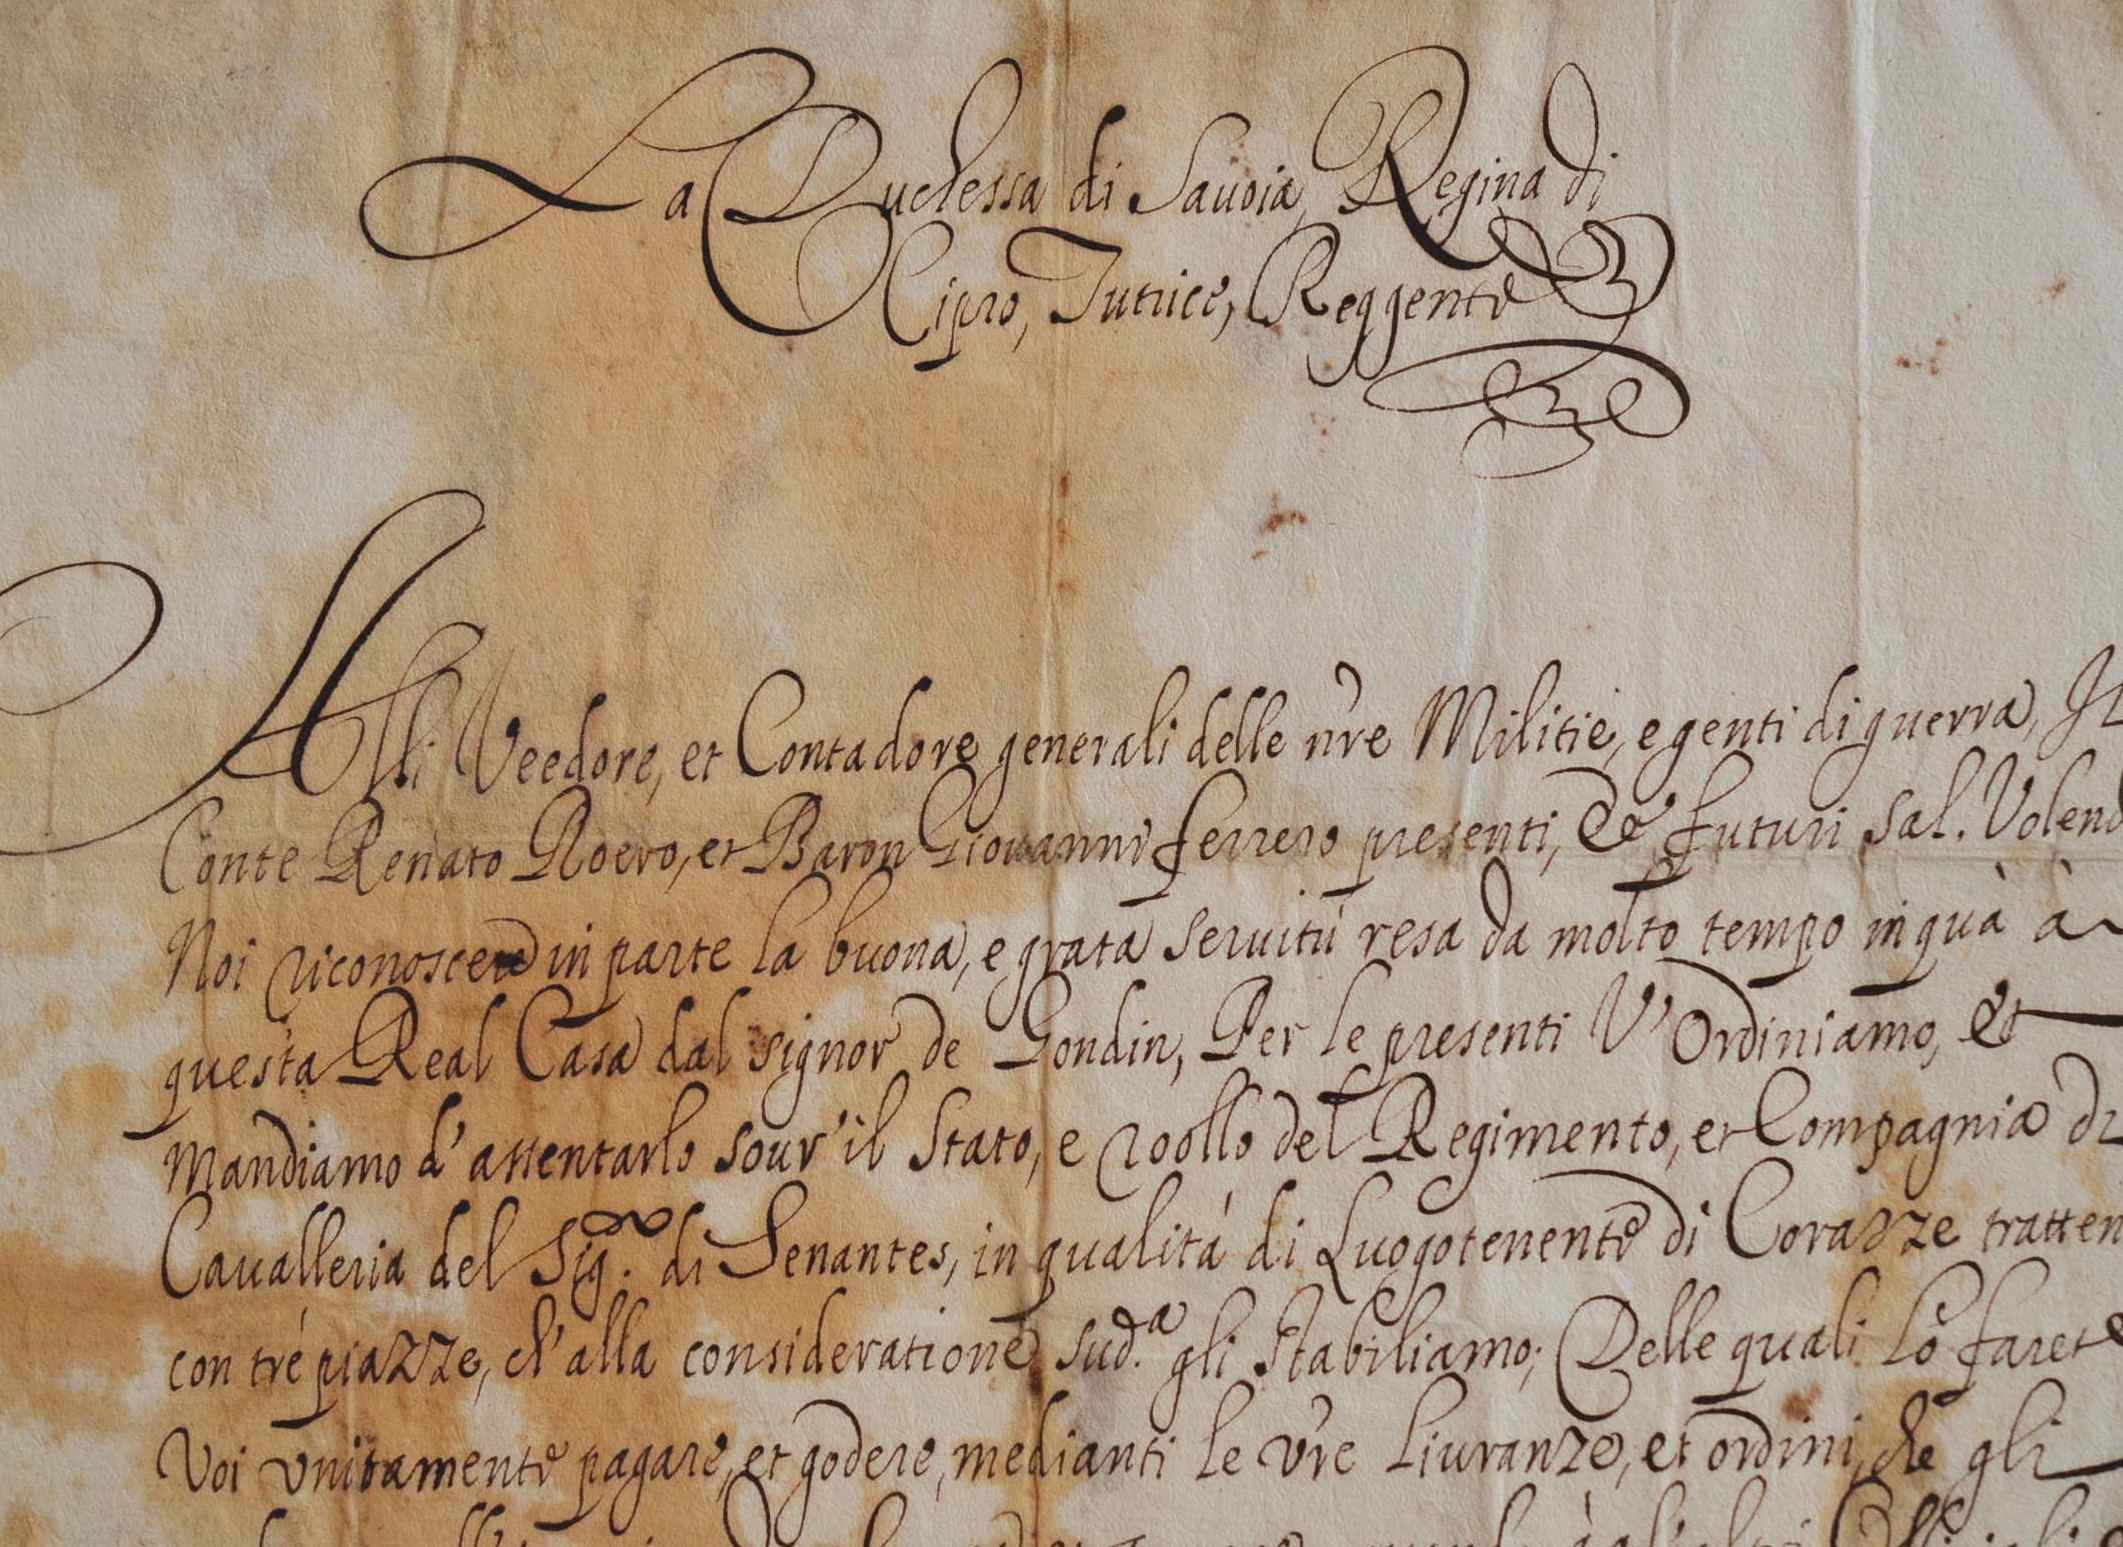 La Duchessa di Sauoia, Regina di
Cipro, Tutrice, Reggente
Alli Veedore, et Contadore generali delle nre Militie, e genti di guerra, Il
Conte Renato Roero, et Baron Giouanni ferrero presenti, & futuri sal. Volend
Noi riconoscere in parte la buona, e grata seruitù resa da molto tempo in quà à
questa Real Casa dal signor de Gondin, Per le presenti V'Ordiniamo, et
Mandiamo d'assentarlo sour'il Stato, e roollo del Regimento, et Compagnia di
Caualleria del Sig.re di Senantes, in qualità di Luogotenente di Corazze tratten
con tré piazze, ch'alla consideratione sud.a gli stabiliamo; Delle quali lo farete
Voi vnitamente pagare, et godere, medianti le vre liuranze, et ordini, che gli